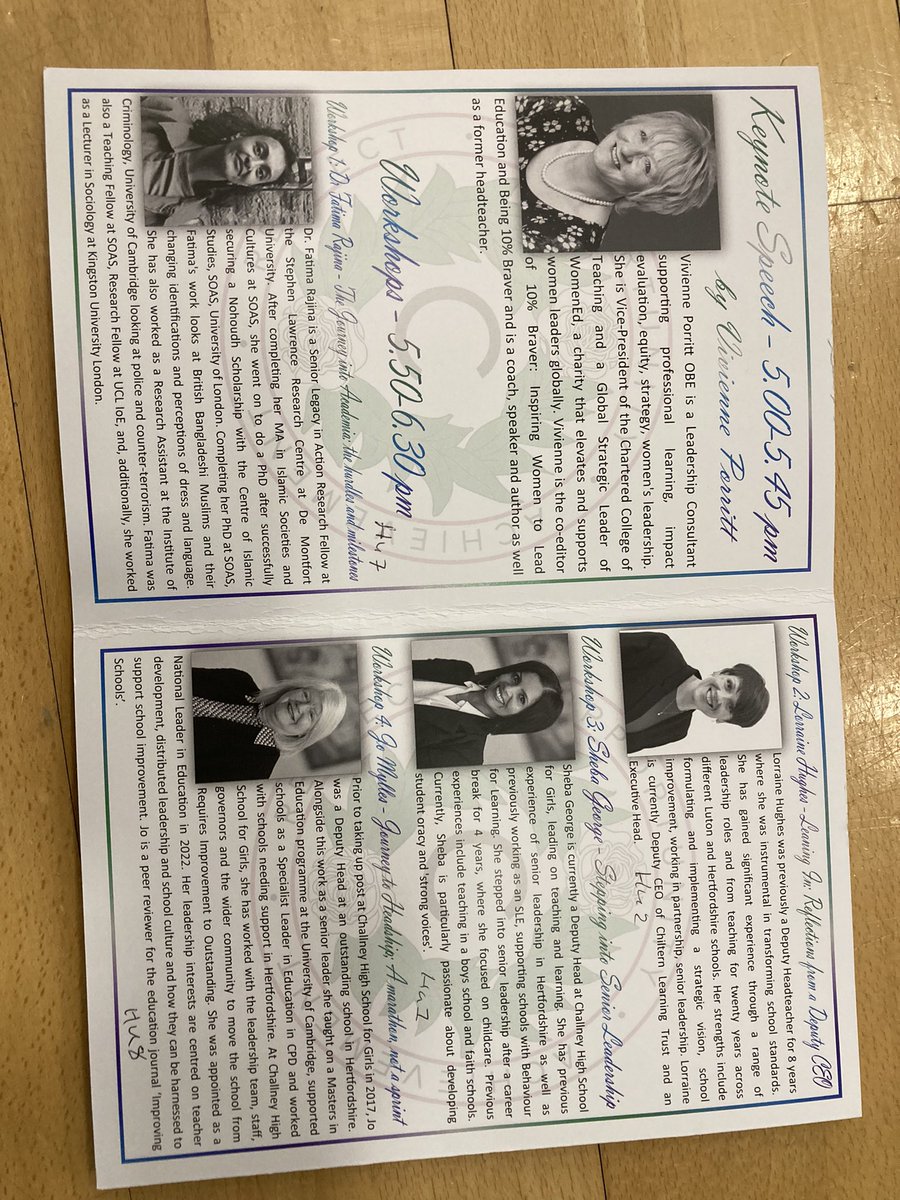 Keynote Speech - 5.00-5.45 pm
by Vivienne Porritt
Vivienne Porritt OBE is a Leadership Consultant
supporting professional learning, impact
evaluation, equity, strategy, women's leadership.
She is Vice-President of the Chartered College of
Teaching and a Global Strategic Leader of
WomenEd, a charity that elevates and supports
women leaders globally. Vivienne is the co-editor
of 10% Braver: Inspiring Women to Lead
Education and Being 10% Braver and is a coach, speaker and author as well
as a former headteacher.
Workshops - 5.50-6.30pm
Hu7
Workshop 1: Dr Fatima Rajina - The Journey into Academia: the hurdles and milestones
Dr. Fatima Rajina is a Senior Legacy in Action Research Fellow at
the Stephen Lawrence Research Centre at De Montfort
University. After completing her MA in Islamic Societies and
Cultures at SOAS, she went on to do a PhD after successfully
securing a Nohoudh Scholarship with the Centre of Islamic
Studies, SOAS, University of London. Completing her PhD at SOAS,
Fatima's work looks at British Bangladeshi Muslims and their
changing identifications and perceptions of dress and language.
She has also worked as a Research Assistant at the Institute of
Criminology, University of Cambridge looking at police and counter-terrorism. Fatima was
also a Teaching Fellow at SOAS, Research Fellow at UCL IoE, and, additionally, she worked
as a Lecturer in Sociology at Kingston University London.
Workshop 2: Lorraine Hughes - Leaning In: Reflections from a Deputy CEO
Lorraine Hughes was previously a Deputy Headteacher for 8 years
where she was instrumental in transforming school standards.
She has gained significant experience through a range of
leadership roles and from teaching for twenty years across
different Luton and Hertfordshire schools. Her strengths include
formulating and implementing a strategic vision, school
improvement, working in partnership, senior leadership. Lorraine
is currently Deputy CEO of Chiltern Learning Trust and an
Executive Head.
Hu2
Workshop 3: Sheba George - Stepping into Senior Leadership
Sheba George is currently a Deputy Head at Challney High School
for Girls, leading on teaching and learning. She has previous
experience of senior leadership in Hertfordshire as well as
previously working as an SLE, supporting schools with Behaviour
for Learning. She stepped into senior leadership after a career
break for 4 years, where she focused on childcare. Previous
experiences include teaching in a boys school and faith schools.
Currently, Sheba is particularly passionate about developing
student oracy and 'strong voices'.
Workshop 4: Jo Mylles - Journey to Headship; A marathon, not a sprint
Prior to taking up post at Challney High School for Girls in 2017, Jo
was a Deputy Head at an outstanding school in Hertfordshire.
Alongside this work as a senior leader she taught on a Masters in
Education programme at the University of Cambridge, supported
schools as a Specialist Leader in Education in CPD and worked
with schools needing support in Hertfordshire. At Challney High
School for Girls, she has worked with the leadership team, staff,
governors and the wider community to move the school from
Requires Improvement to Outstanding. She was appointed as a
National Leader in Education in 2022. Her leadership interests are centred on teacher
development, distributed leadership and school culture and how they can be harnessed to
support school improvement. Jo is a peer reviewer for the education journal 'Improving
Schools'.
Hu8